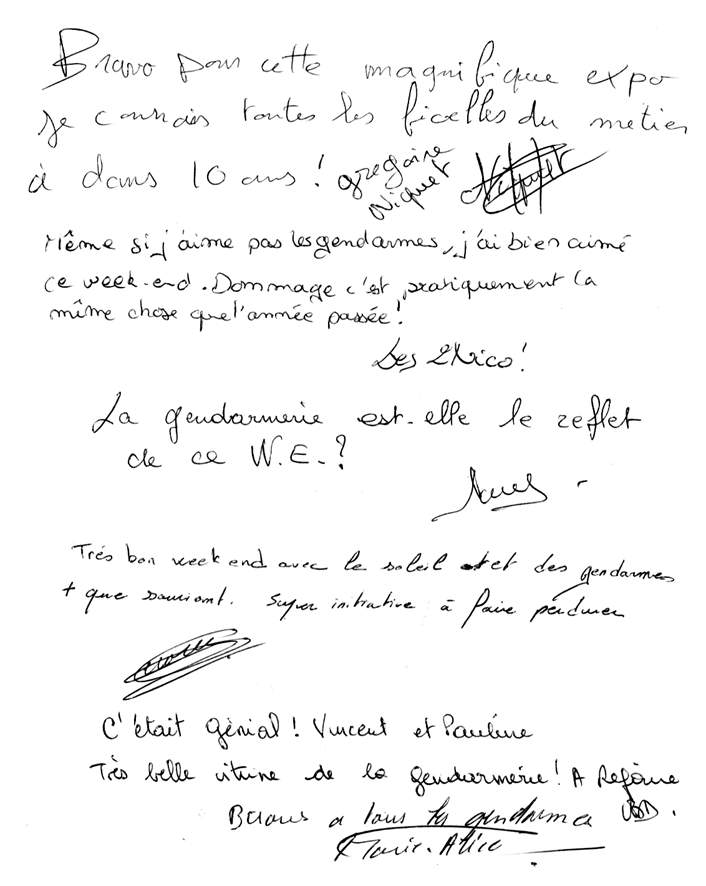 Bravo pour cette magnifique expo
je connais toutes les ficelles du metier
à dans 10 ans ! gregoire
Niquet
Même si j'aime pas les gendarmes, j'ai bien aimé
ce week-end. Dommage c'est pratiquement la
même chose que l'année passée !
Les 2 Nico !
La gendarmerie est-elle le reflet
de ce W.E. ?
Très bon week end avec le soleil et des gendarmes
+ que souriant. Super initiative à faire perdurer
C'était génial ! Vincent et Pauline
Très belle vitrine de la gendarmerie ! A Refaire
Bravo a tous les gendarmes
Marie-Alice